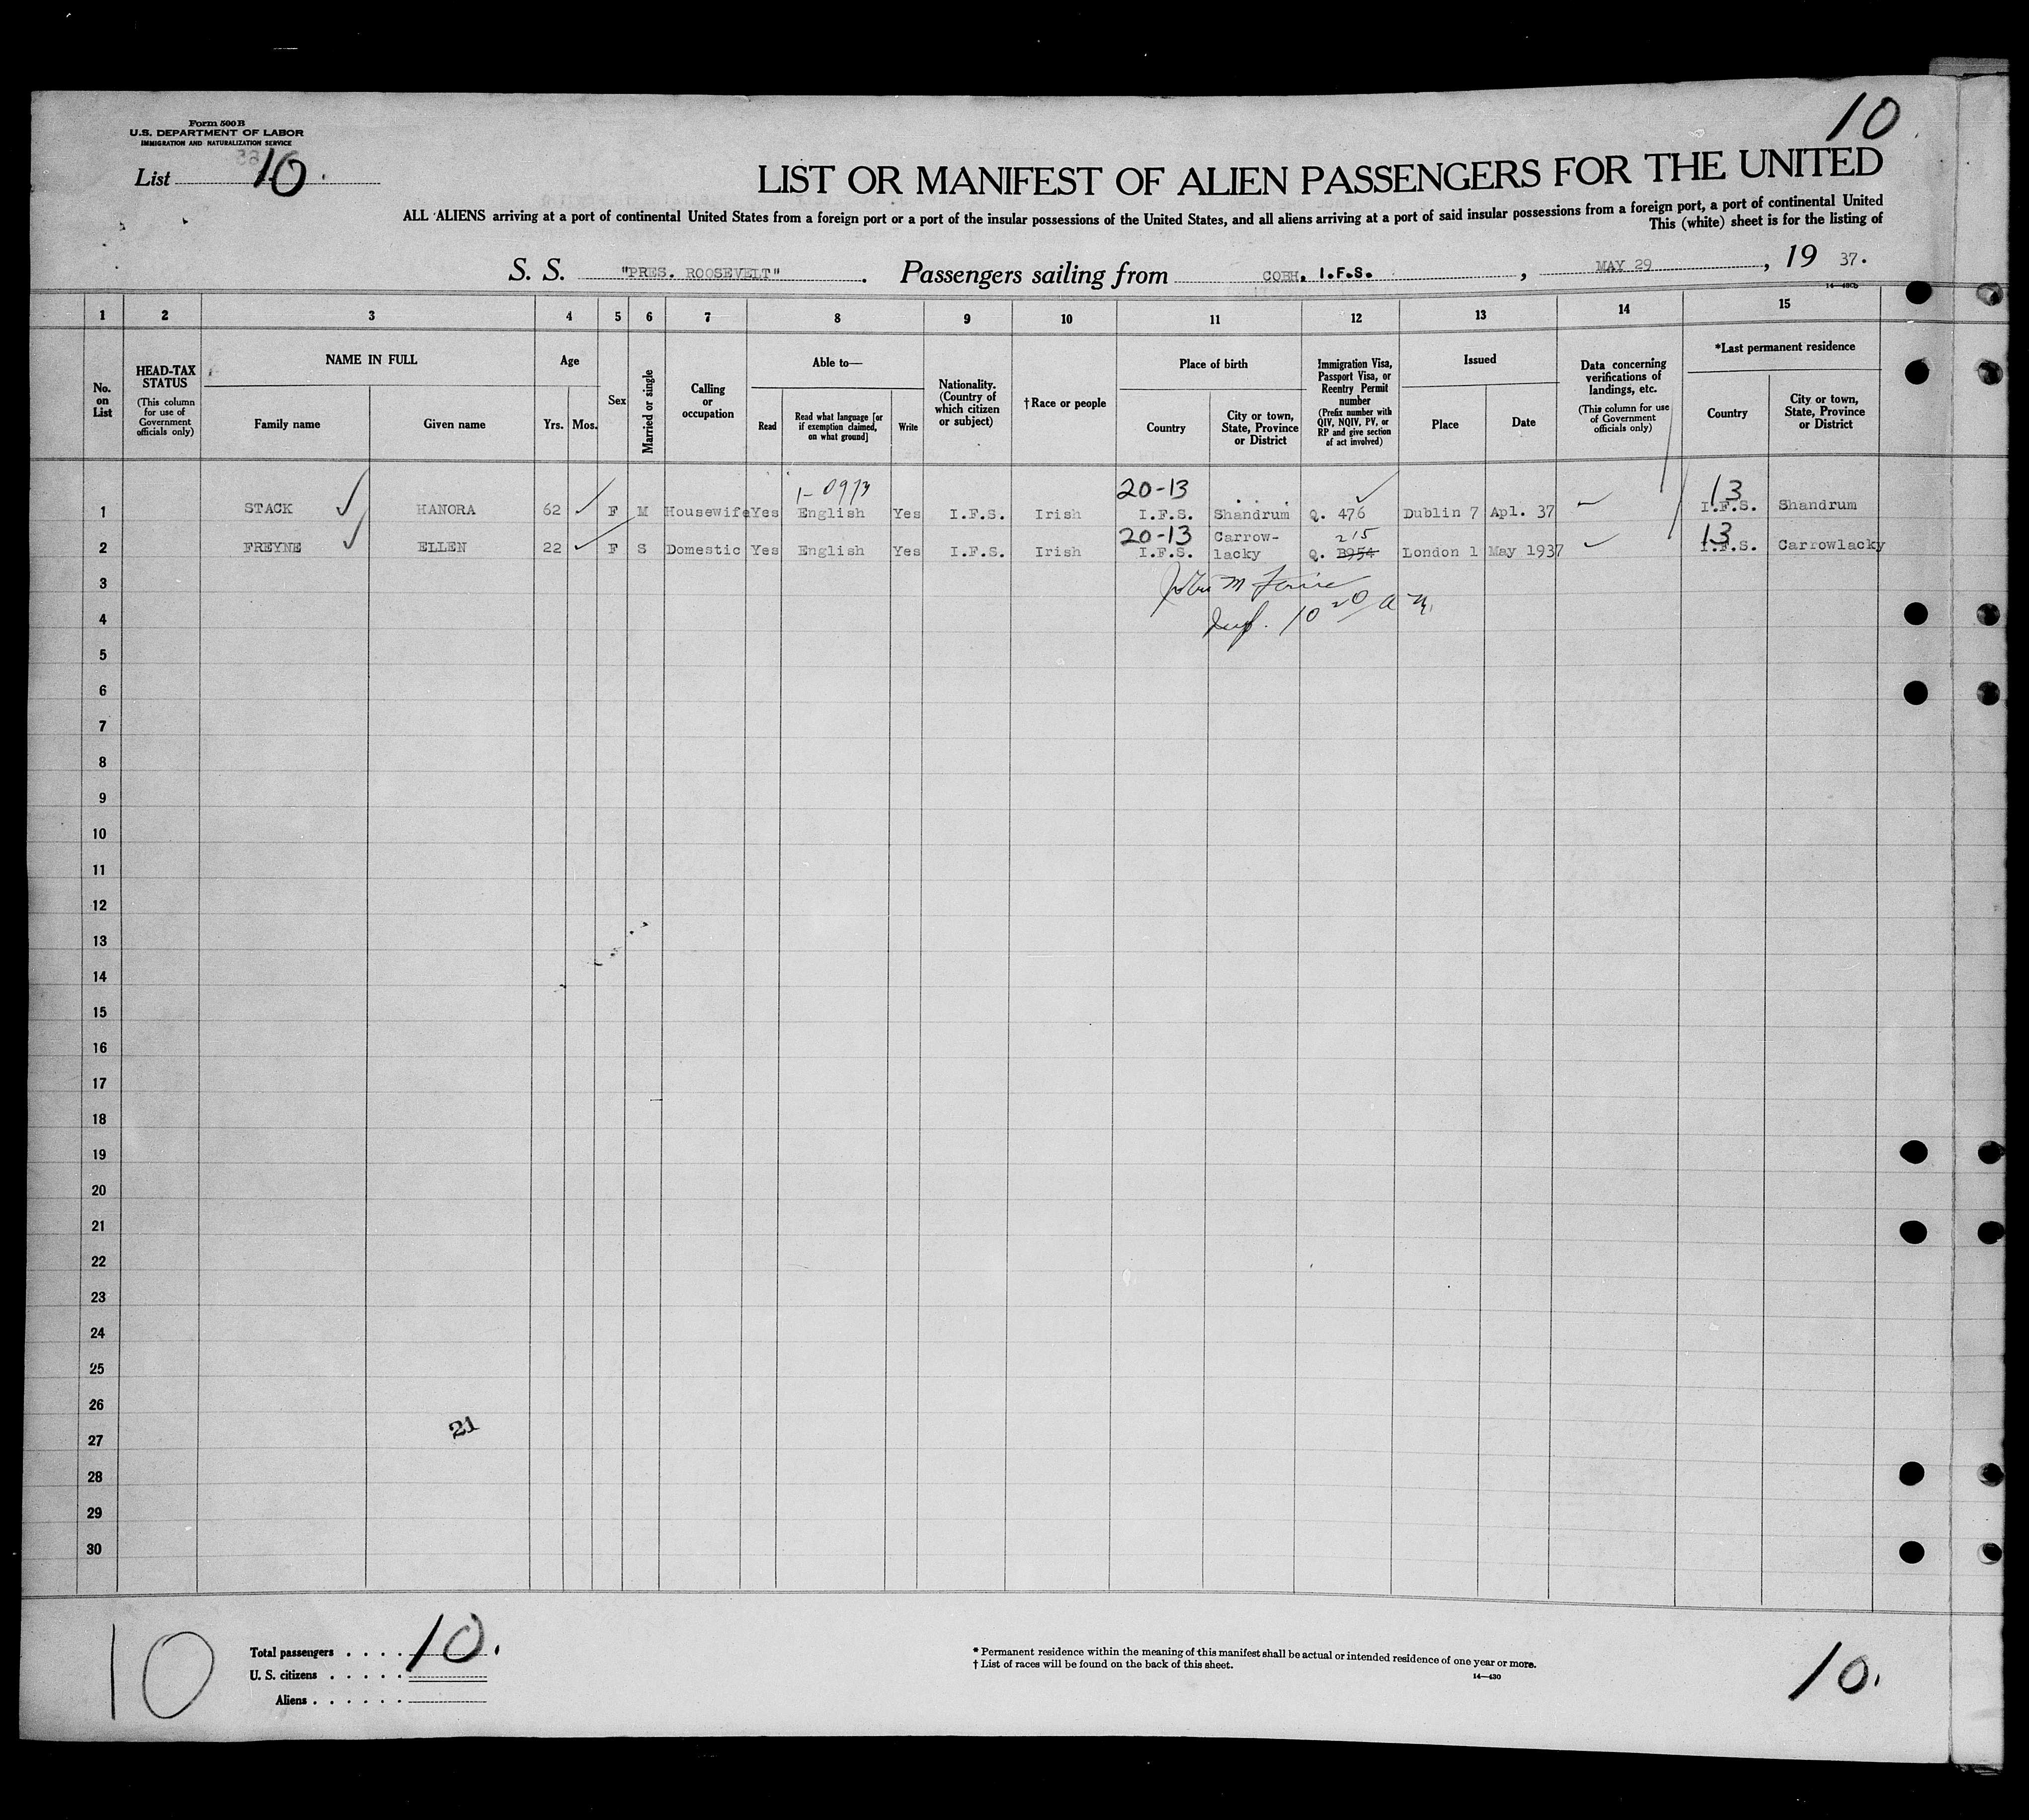 10
Form 500B
U.S. DEPARTMENT OF LABOR
IMMIGRATION AND NATURALIZATION SERVICE
List 10.
LIST OR MANIFEST OF ALIEN PASSENGERS FOR THE UNITED
ALL ALIENS arriving at a port of continental United States from a foreign port or a port of the insular possessions of the United States, and all aliens arriving at a port of said insular possessions from a foreign port, a port of continental United
This (white) sheet is for the listing of
S. S. "PRES. ROOSEVELT". Passengers sailing from COBH, I.F.S., MAY 29, 19 37.
1 2 3 4 5 6 7 8 9 10 11 12 13 14 15
No. on List
HEAD-TAX STATUS (This column for use of Government officials only)
NAME IN FULL
Family name
Given name
Age
Yrs. Mos.
Sex
Married or single
Calling or occupation
Able to—
Read
Read what language [or if exemption claimed, on what ground]
Write
Nationality. (Country of which citizen or subject)
†Race or people
Place of birth
Country
City or town, State, Province or District
Immigration Visa, Passport Visa, or Reentry Permit number (Prefix number with QIV, NQIV, PV, or RP and give section of act involved)
Issued
Place
Date
Data concerning verifications of landings, etc. (This column for use of Government officials only)
*Last permanent residence
Country
City or town, State, Province or District
20-13 13
1 STACK HANORA 62 F M Housewife Yes English Yes I.F.S. Irish I.F.S. Shandrum Q. 476 Dublin 7 Apl. 37 I.F.S. Shandrum
20-13 215 13
2 FREYNE ELLEN 22 F S Domestic Yes English Yes I.F.S. Irish I.F.S. Carrow-lacky Q. London 1 May 1937 I.F.S. Carrowlacky
3
4 10 20 a m.
5
6
7
8
9
10
11
12
13
14
15
16
17
18
19
20
21
22
23
24
25
26
21
27
28
29
30
10
Total passengers . . . . 10.
U. S. citizens . . . . .
Aliens . . . . . .
* Permanent residence within the meaning of this manifest shall be actual or intended residence of one year or more.
† List of races will be found on the back of this sheet.
14—430
10.